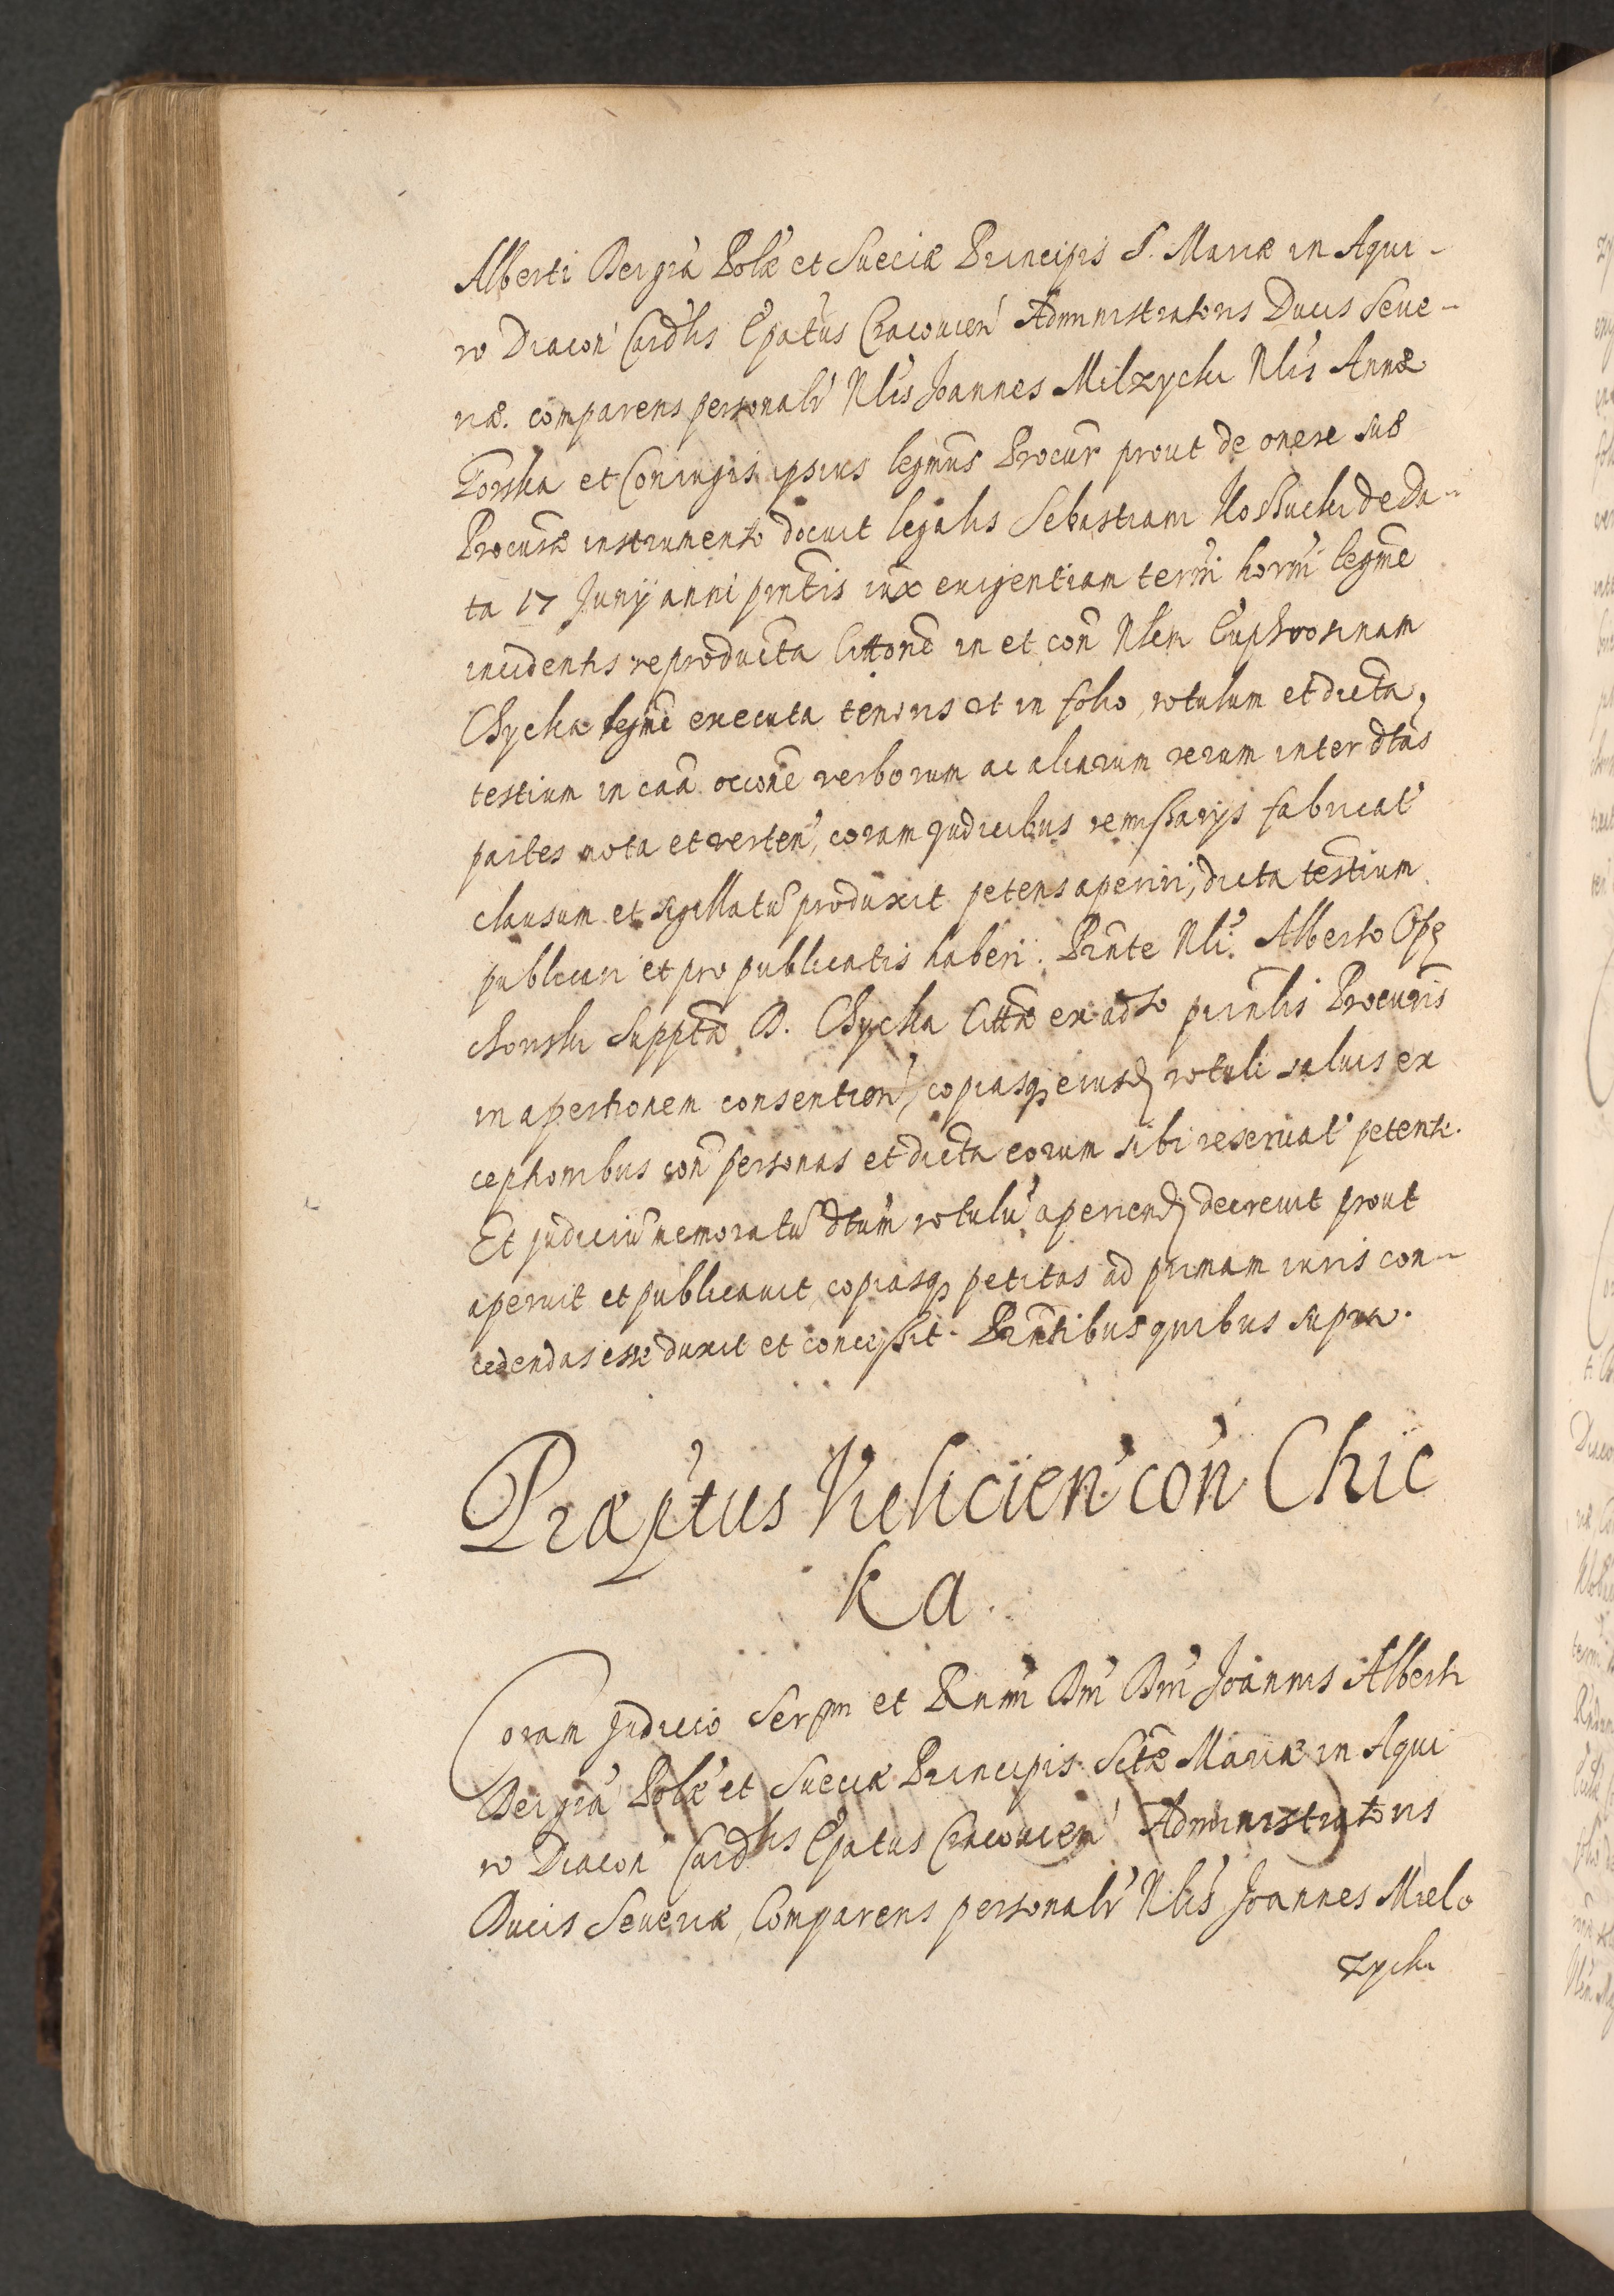 Alberti Dei gra Polæ et Sueciæ Principis S. Mariæ in Aqui-
ro Diacon Cardlis Epatus Cracovien Administratoris Ducis Seve-
riæ. comparens personalr Nlis Joannes Milzycki Nlis Annæ
et Coniugis ipsius legmus Procur prout de onere suæ
Procuræ instrumento docuit legalis Sebastiani de Da-
ta 17 Junij anni pntis iux exigentiam termi horni legme
incidentis reproducta Citтone in et con Nlem Euphrosinam
Chycka legme executa tenoris ut in folio, rotulum et dicta,
testium in caa occone verborum ac aliarum rerum inter dtas
partes mota et verten, coram Judicibus remissarijs fabricat
clausum et sigillatu produxit petens aperiri, dicta testium
publicari et pro publicatis haberi. Pnte Nli Alberto Opę
chowski Supptæ D. Chycka Cittæ ex adso prinlis Procuris
in apertionem consentien, copiasq eiusd rotuli salvis ex
ceptionibus con personas et dicta eorum sibi reservat petente.
Et judiciu memoratu dtum rotulu aperiend decrevit prout
aperuit et publicavit, copiasq petitas ad primam iuris con-
cedendas esse duxit et concessit. Pntibus quibus supra.
Præptus Vielicien con Chic
ka.
Coram Judicio Sermi et Rnmi Dni Dni Joannis Alberti
Dei gra Polæ et Sueciæ Principis Sctæ Mariæ in Aqui
ro Diacon Cardlis Epatus Cracovien Administratoris
Ducis Severiæ, Comparens personalr Nlis Joannes Mielo
zycki